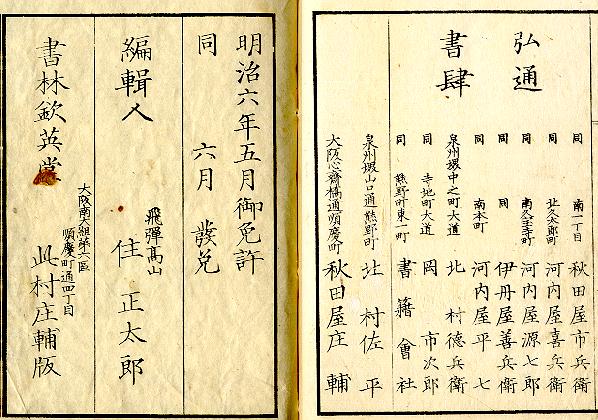 弘通
書肆
同 南一丁目 秋田屋市兵衛
同 北久太郎町 河内屋喜兵衛
同 南久宝寺町 河内屋源七郎
同 同 伊丹屋善兵衛
同 南本町 河内屋平七
泉州堺中之町大道 北村徳兵衛
同 寺地町大道 岡市次郎
同 熊野町東一町 書籍會社
泉州堺山口通熊野町 北村佐平
大阪心齋橋通順慶町 秋田屋庄輔
明治六年五月御免許
同 六月 發兌
編輯人 飛彈高山 住正太郎
大阪南大組第六區
順慶町通四丁目
書林欽英堂 此村庄輔版